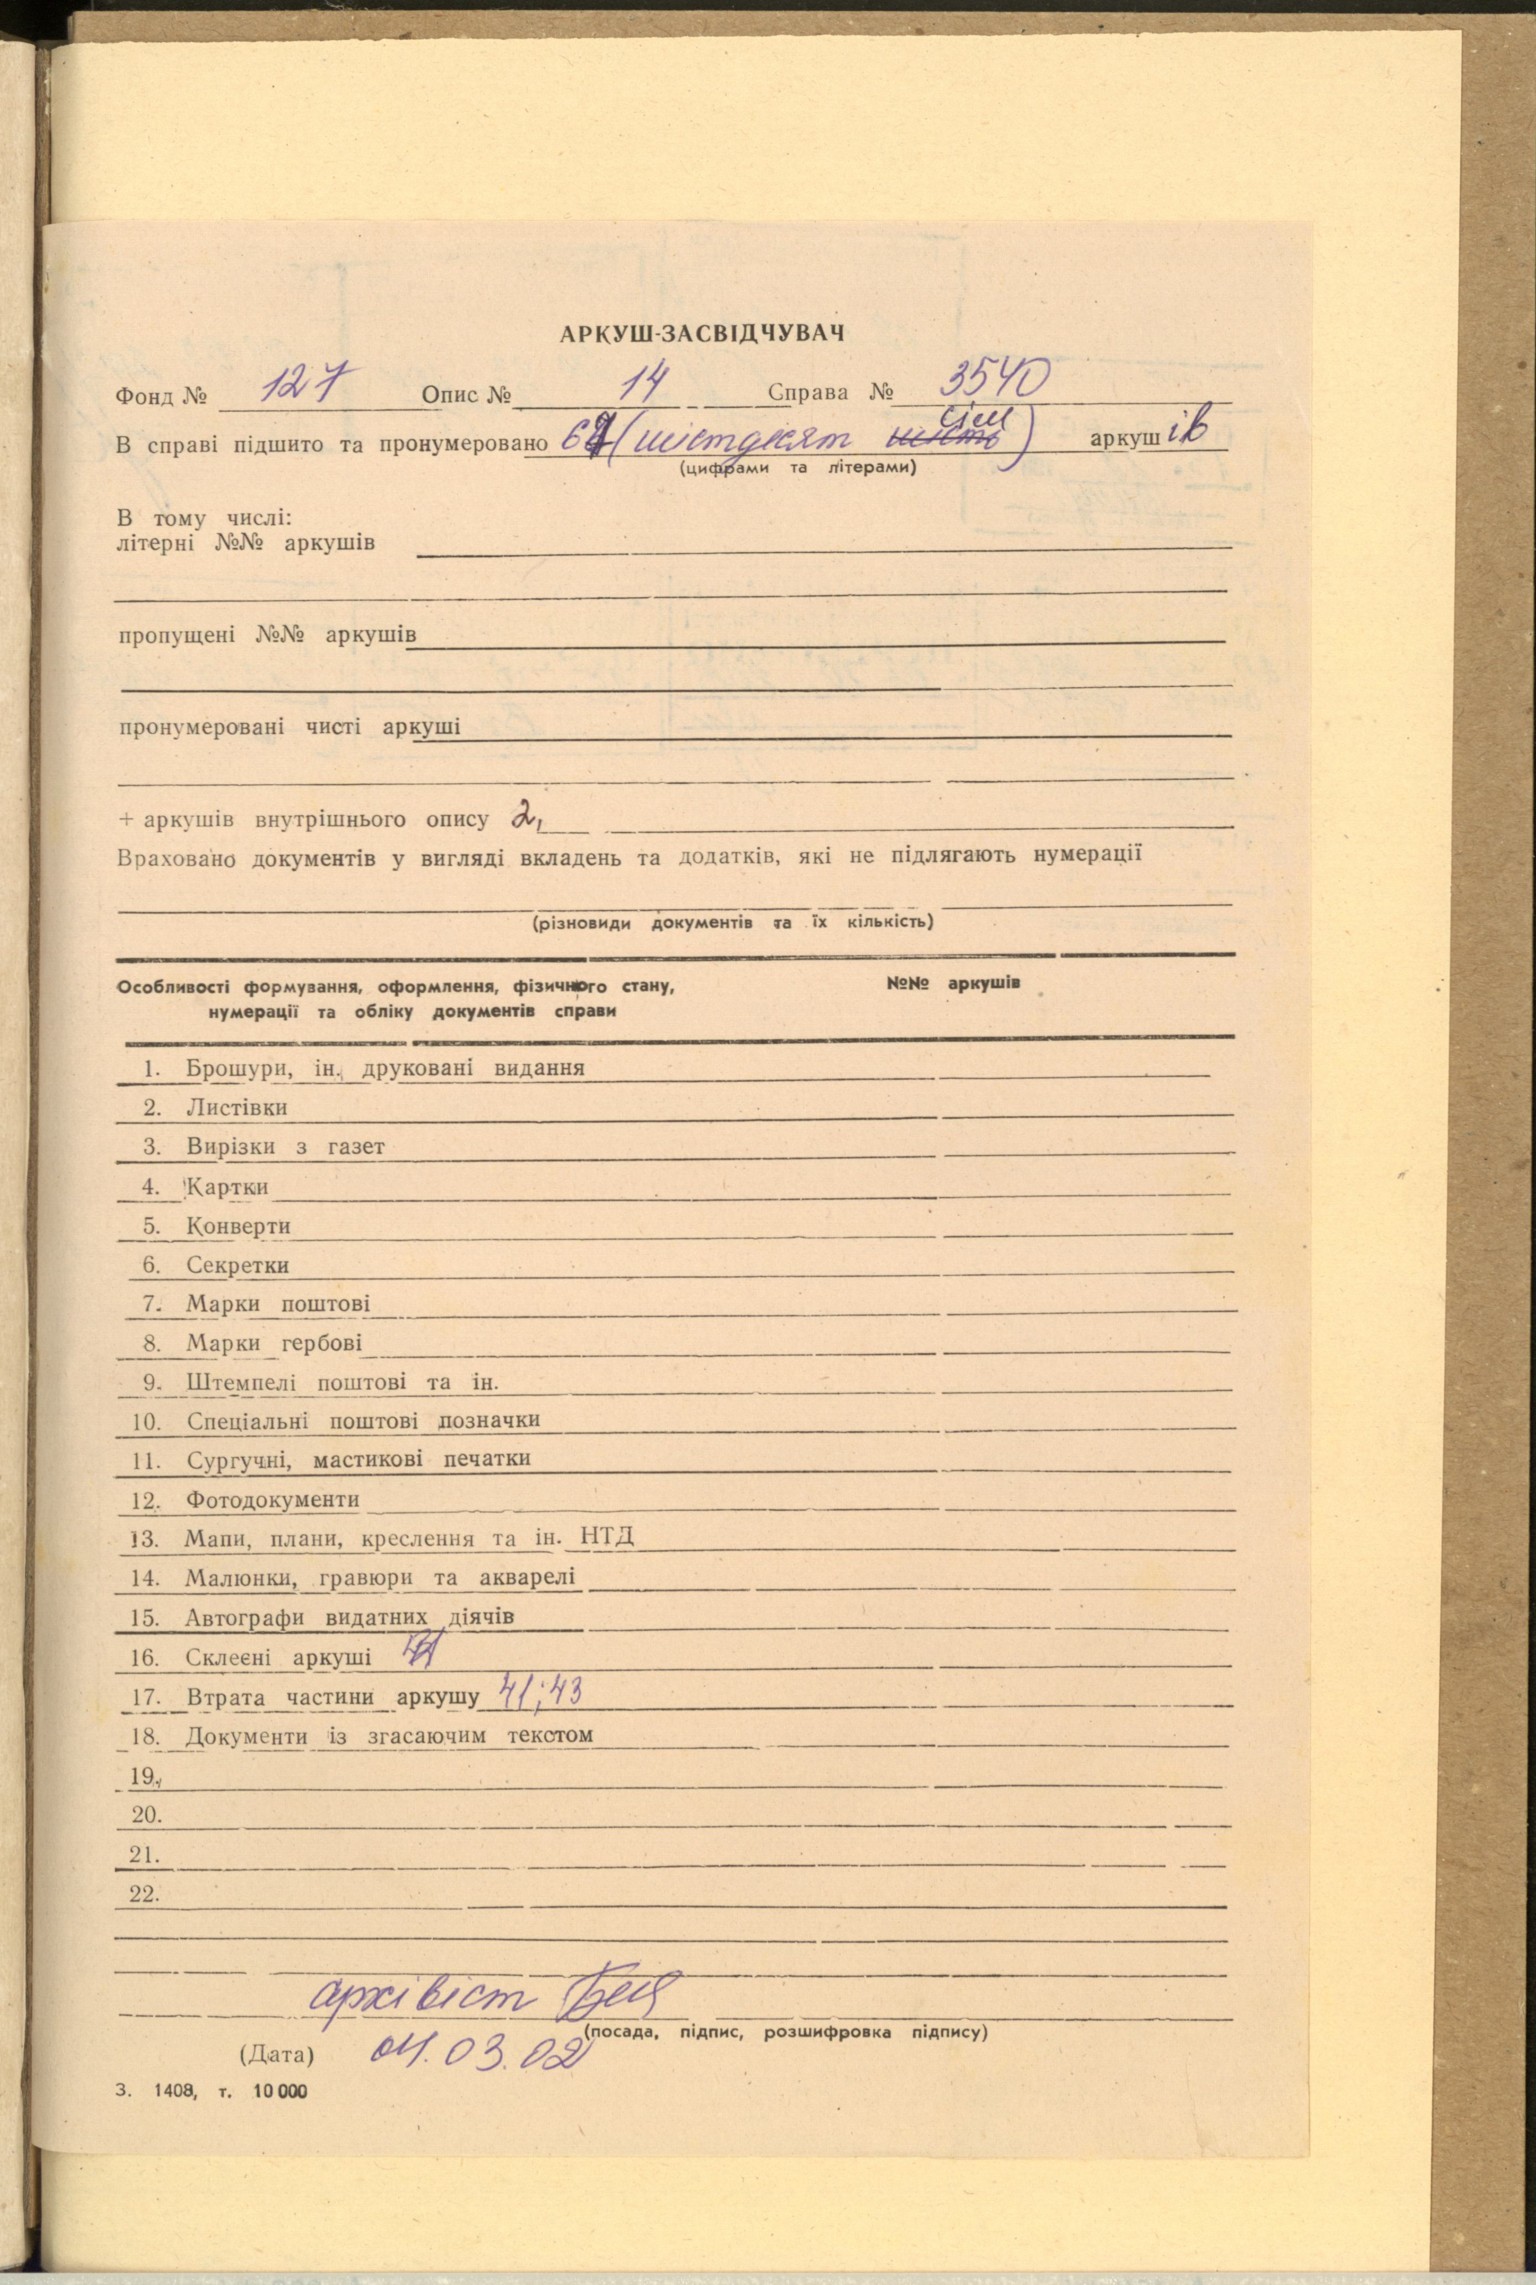 АРКУШ-ЗАСВІДЧУВАЧ
Фонд № 127 Опис № 14 Справа № 3540
сім
В справі підшито та пронумеровано 67 (шістдесят шість) аркушів
(цифрами та літерами)
В тому числі:
літерні №№ аркушів
пропущені №№ аркушів
пронумеровані чисті аркуші
+ аркушів внутрішнього опису 2,
Враховано документів у вигляді вкладень та додатків, які не підлягають нумерації
(різновиди документів та їх кількість)
Особливості формування, оформлення, фізичного стану, №№ аркушів
нумерації та обліку документів справи
1. Брошури, ін. друковані видання
2. Листівки
3. Вирізки з газет
4. Картки
5. Конверти
6. Секретки
7. Марки поштові
8. Марки гербові
9. Штемпелі поштові та ін.
10. Спеціальні поштові позначки
11. Сургучні, мастикові печатки
12. Фотодокументи
13. Мапи, плани, креслення та ін. НТД
14. Малюнки, гравюри та акварелі
15. Автографи видатних діячів
16. Склеєні аркуші
17. Втрата частини аркушу 41; 43
18. Документи із згасаючим текстом
19.
20.
21.
22.
архівіст
(посада, підпис, розшифровка підпису)
(Дата) 04.03.02
З. 1408, т. 10 000